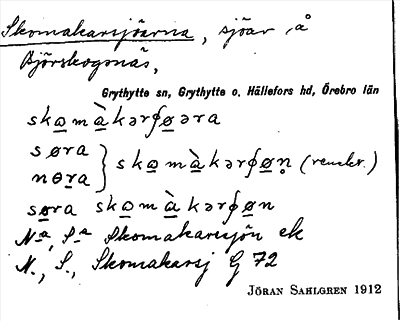 Skomakarsjöarna, sjöar å
Björskogsnäs,
Grythytte sn, Grythytte o. Hällefors hd, Örebro län
sko̲mà̲kərʃø̲əra
søra } sko̲mà̲kərʃø̲n̥ (renskr.)
nɵ̲ra
sø̲ra sko̲mà̲kərʃø̲n
Na, Sa Skomakaresjön ek
N., S., Skomakarsj G 72
JÖRAN SAHLGREN 1912